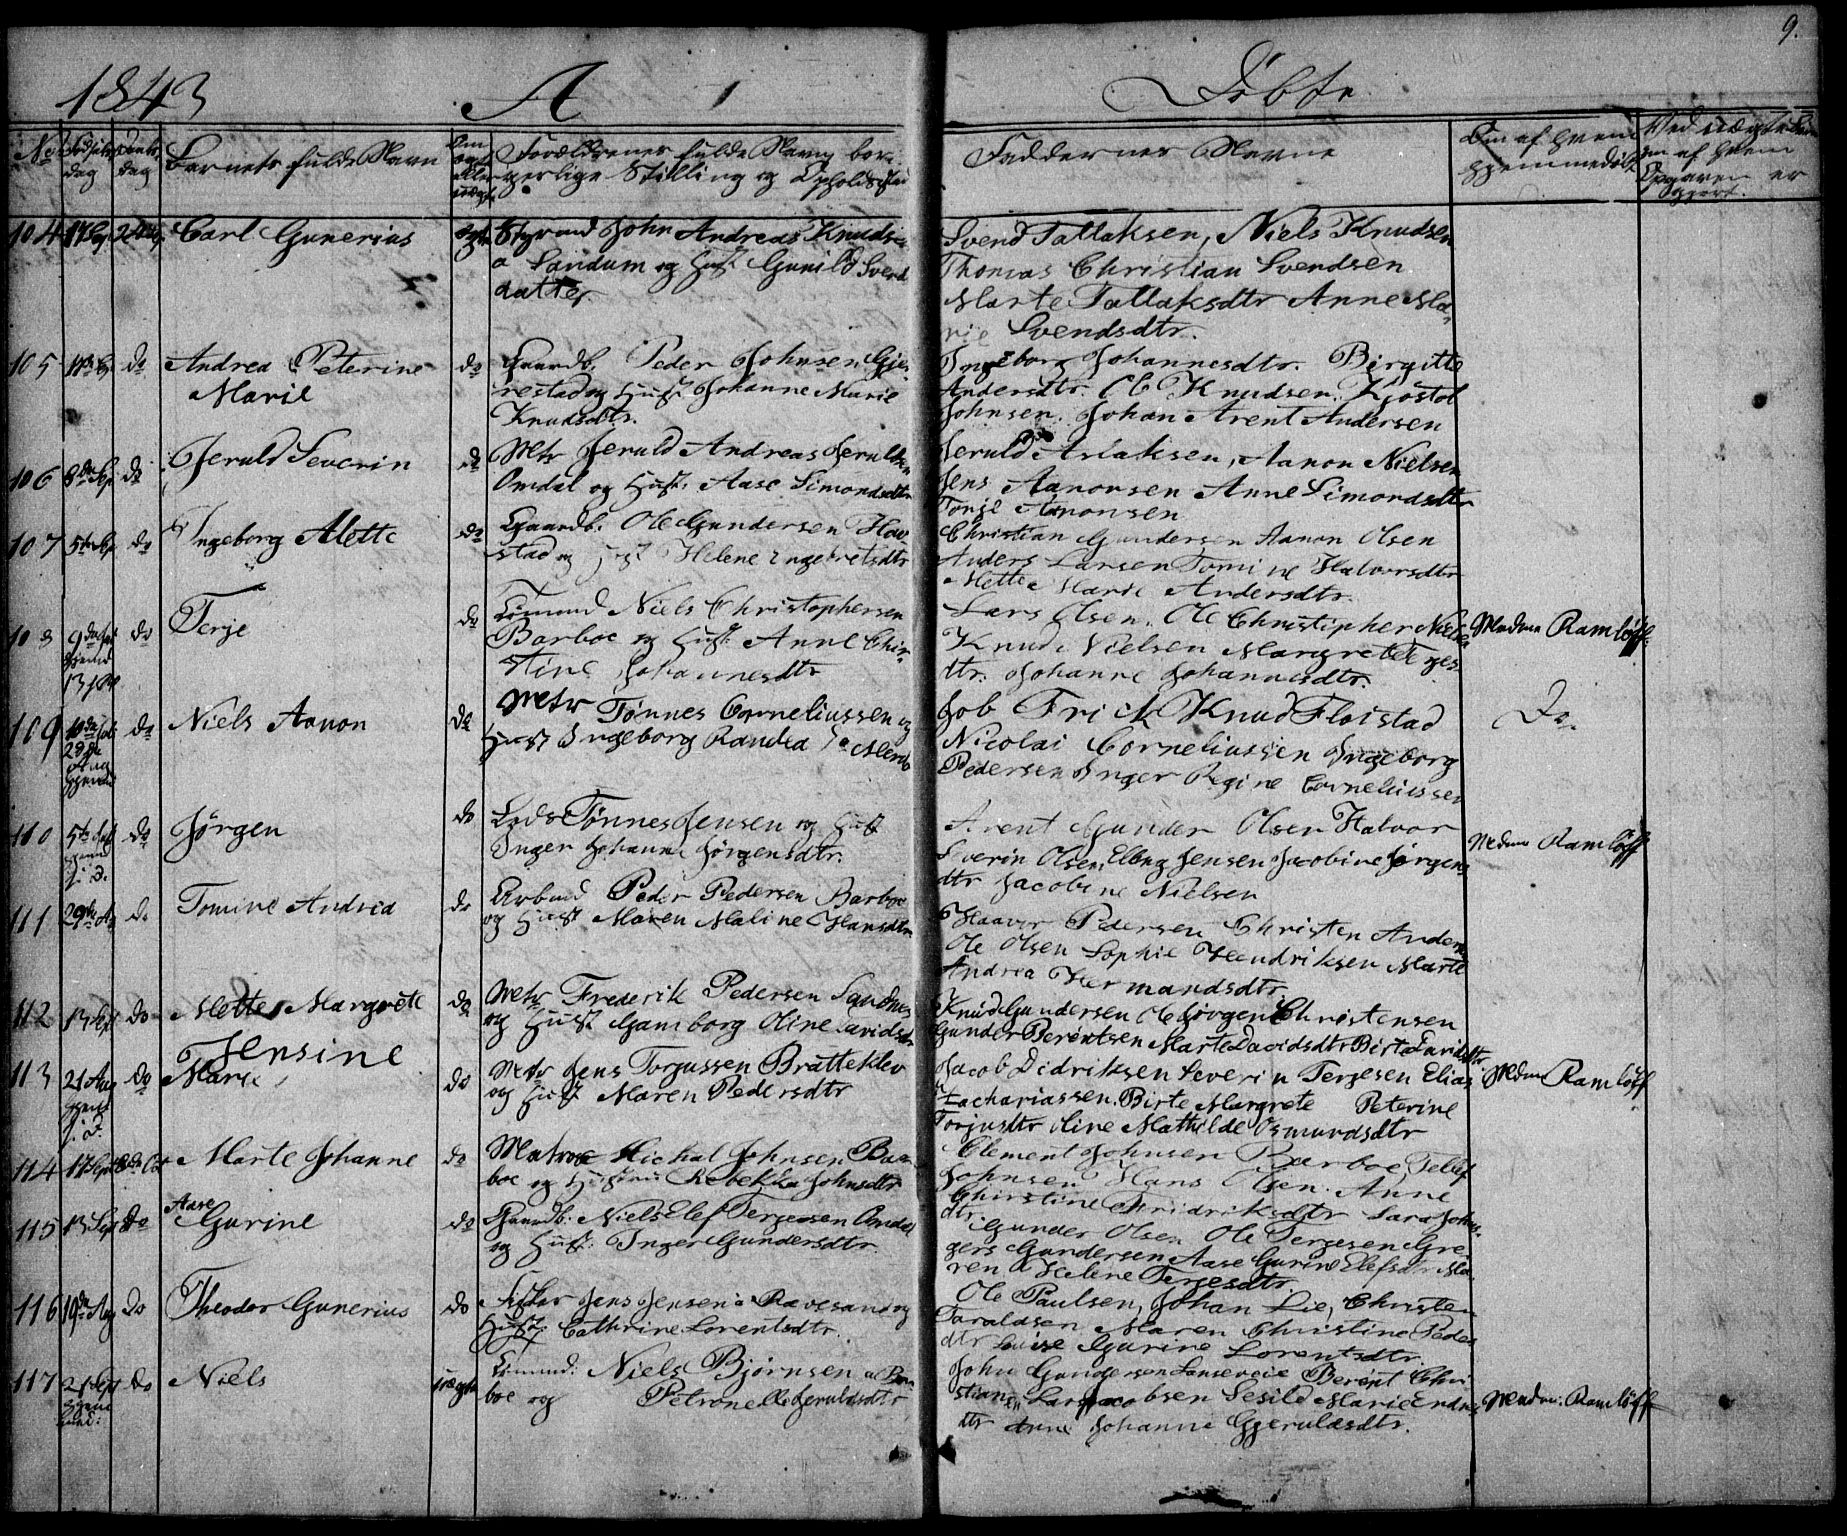 9.
1843 A Döbte
No Fødsels dag Daabs dag Barnets fulde Navn Om ægte eller uægte Forældrenes fulde Navn borgerlige Stilling og Opholdssted
Faddernes Navne
Om af hvem hjemmedøbt
Ved uægte om af hvem Opgaven er gjort.
104 Carl Gunerius ægte Styrmd John Andreas Knudsen
a Sandum og Hust Gunild Svends
datter
Svend Tallaksen, Niels Knudsen
Thomas Christian Svendsen
Marte Tallaksdtr Anne Ma-
rie Svendsdtr.
105 do Andrea Peterine
Marie
do Gaardb. Peder Johnsen Gje-
restad og Hust Johanne Marie
Knudsdtr.
Ingeborg Johannesdtr. Birgitte
Andersdtr. Ol Knudsen. Kjøstol
Johnsen. Johan Arent Andersen
106 8de Sep do Jeruld Severin
do Matr Jeruld Andreas Jeruldsen
Omdal og Hust. Aase Simondsdtr
Jeruld Aslaksen, Aanon Nielsen
Jens Aanonsen Anne Simonsdtr
Tonje Aanonsen
107 5te Sep do Ingeborg Alette
do Gaardb. Ole Gundersen Hav-
stad og Hust Helene Ingebretsdtr
Christian Gundersen Aanon Olsen
Anders Larsen Tomine Halvorsdtr
Mette Marie Andersdtr.
108 9de do Terje
13
do Sømand Niels Christophersen
Barboe og Hust. Anne Chir-
stine Johannesdtr
Lars Olsen. Ole Christipher Nielsen
Knud Nielsen Margrete Terjes-
dtr. Johanne Johannesdtr.
Madam Ramløff
109 10de do Niels Aanon
do Matr Tønnes Corneliussen og
Hust Ingeborg Randia Merdø
Job Frick Knud Fløistad
Nicolai Corneliussen Ingeborg
Pedersen Inger Regine Corneliussen
Do.
110 5te do Jørgen
do Lods Tønnes Jensen og Hust
Inger Johanne Jørgensdtr.
Arent Gunder Olsen Halvor
Sverin Olsen Elling Jensen Jacobine Jørgens-
dtr Jacobine Nielsen
Madam Ramløff
111 29de do Tomine Andrea
do Arbmd Peder Pedersen Barboe
og Hust Maren Maline Hansdtr
Haaver Pedersen Christen Anders
Ole Olsen Sophie Hendriksen Marte
Andrea Hermandsdtr
112 13 Sept do Mette Margrete
Jensine
do Matr Frederik Pedersen Sandnes
og Hust Gamborg Oline Davidsdtr
Knud Gundersen Ole Jørgen Christensen
Gunder Berentsen Marte Davidsdtr Birte Davidsdtr
113 21 Aug do Marie
do Matr Jens Torgussen Bratteklev
og Hust Maren Pedersdtr
Jacob Didriksen Severin Terjesen Elias
Zachariassen. Birte Margrete Peterine
Torjusdtr Oline Mathilde Osmundsdtr
Madam Ramløff
114 17 Sept 8de Oct Marte Johanne
do Matros Michal Johnsen Bar-
boe og Hustru Rebekka Johnsdtr
Clement Johnsen Barboe, Tellef
Johnsen Hans Olsen. Anne
Chirstine Fridriksdtr Sara Johns-
dtr.
115 13 Sep do Aase
Gurine
do Gaardb. Niels Elef Terjesen Omdal
og Hust. Inger Gundersdtr.
Gunder Olsen Ole Terjesen Gre-
gers Gundersen Aase Gurine Elefsdtr Ma-
ren Helene Terjesdtr.
116 19de Aug do Theodor Gunerius
do Fisker Jens Jensen a Rævesand og
Hust Cathrine Lorentsdtr.
Ole Paulsen, Johan Lie, Christen
Taraldsen Maren Christine Peders
dtr Louise Gurine Lorentsdtr.
117 21 Sept do Niels
uægte Sømand: Niels Bjørnsen a Bar-
boe og Petronelle Jeruldsdtr
John Gundersen Lanseveie Berent Chri-
stian Lars Jacobsen Sesild Marie Enders
dtr Anne Johanne Gjeruldsdtr.
Madam: Ramløff